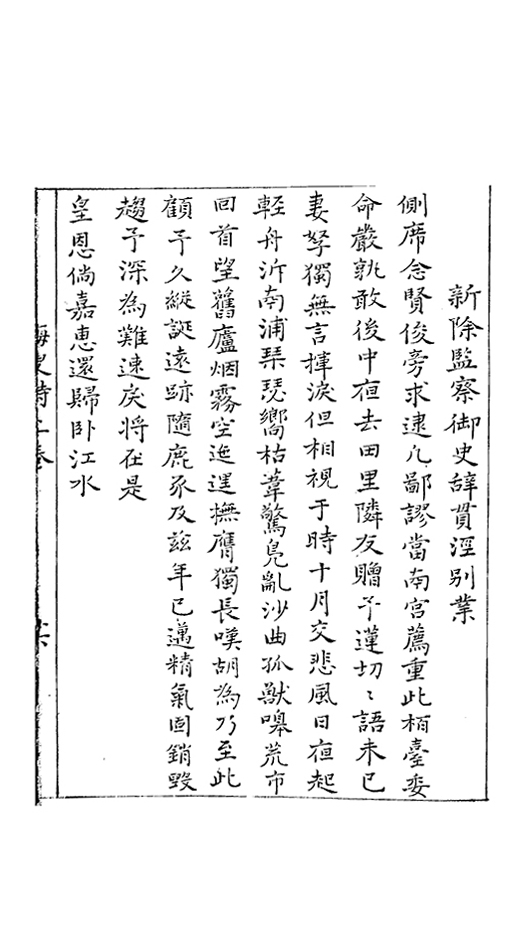 新除監察御史辭貫涇别業
側席念賢俊旁求逮凡鄙謬當南宫薦重此栢臺委
命嚴孰敢後中夜去田里隣友贈予蓮切〻語未已
妻孥獨無言揮淚但相視于時十月交悲風日夜起
輕舟泝南浦琹瑟嚮枯葦驚鳬亂沙曲孤獸嘷荒市
回首望舊廬烟霧空迤𨓦撫膺獨長嘆胡為乃至此
顧予久縱誕遠跡隨鹿豕及兹年已邁精氣固銷毀
趨予深為難速戾將在是
皇恩倘嘉惠還歸卧江水